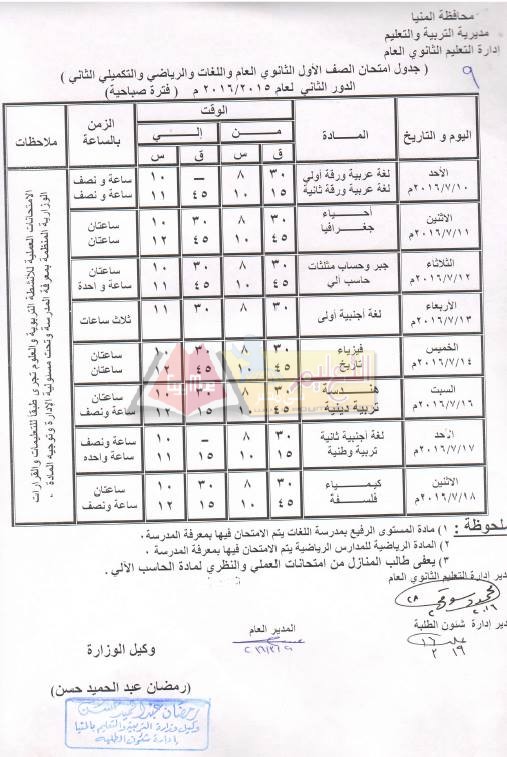 محافظة المنيا
مديرية التربية والتعليم
إدارة التعليم الثانوي العام
٩
( جدول امتحان الصف الأول الثانوي العام واللغات والرياضي والتكميلي الثاني )
الدور الثاني لعام ٢٠١٦/٢٠١٥ م ( فترة صباحية )
اليوم و التاريخ المــادة الوقت الزمن بالساعة ملاحظات
مــن إلـــي
ق س ق س
الأحد ٢٠١٦/٧/١٠م
لغة عربية ورقة أولي ٣٠ ٨ – ١٠ ساعة و نصف
لغة عربية ورقة ثانية ١٥ ١٠ ٤٥ ١١ ساعة و نصف
الاثنين ٢٠١٦/٧/١١م
أحيــاء ٣٠ ٨ ٣٠ ١٠ ساعتان
جغـرافيا ٤٥ ١٠ ٤٥ ١٢ ساعتان
الثلاثاء ٢٠١٦/٧/١٢م
جبر وحساب مثلثات ٣٠ ٨ ٣٠ ١٠ ساعتان
حاسب آلي ٤٥ ١٠ ٤٥ ١١ ساعة و احدة
الأربعاء ٢٠١٦/٧/١٣م
لغة أجنبية أولى ٣٠ ٨ ٣٠ ١١ ثلاث ساعات
الخميس ٢٠١٦/٧/١٤م
فيزياء ٣٠ ٨ ٣٠ ١٠ ساعتان
تاريخ ٤٥ ١٠ ٤٥ ١٢ ساعتان
السبت ٢٠١٦/٧/١٦م
هندسة ٣٠ ٨ ٣٠ ١٠ ساعتان
تربية دينية ٤٥ ١٠ ١٥ ١٢ ساعة ونصف
الأحد ٢٠١٦/٧/١٧م
لغة أجنبية ثانية ٣٠ ٨ – ١٠ ساعة ونصف
تربية وطنية ١٥ ١٠ ١٥ ١١ ساعة واحده
الاثنين ٢٠١٦/٧/١٨م
كيميـاء ٣٠ ٨ ٣٠ ١٠ ساعتان
فلسفة ٤٥ ١٠ ١٥ ١٢ ساعة ونصف
الامتحانات العملية للأنشطة التربوية والعلوم تجرى طبقا للتعليمات والقرارات
الوزارية المنظمة بمعرفة المدرسة وتحت مسئولية الإدارة وتوجيه المادة .
ملحوظة : ١) مادة المستوى الرفيع بمدرسة اللغات يتم الامتحان فيها بمعرفة المدرسة .
٢) المادة الرياضية للمدارس الرياضية يتم الامتحان فيها بمعرفة المدرسة .
٣) يعفى طالب المنازل من امتحانات العملي والنظري لمادة الحاسب الآلي .
دير إدارة التعليم الثانوي العام
دير إدارة شئون الطلبة
المدير العام
وكيل الوزارة
(رمضان عبد الحميد حسن)
رمضان عبد الحميد حسن
وكيل وزارة التربية والتعليم بالمنيا
إدارة شئون الطلبة